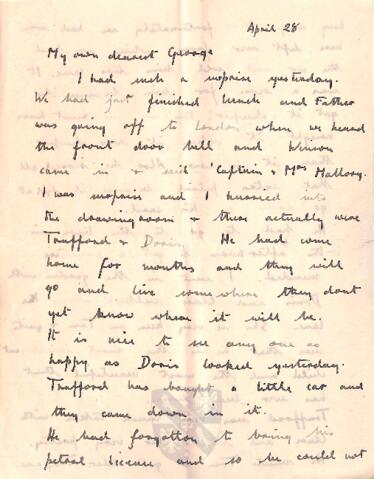 April 28
My own dearest George
I had such a surprise yesterday.
We had just finished lunch and Father
was going off to London when we heard
the front door bell and
came in & said 'Captain & Mrs Mallory.
I was surprise and I hurried into
the drawingroom & there actually were
Trafford & Doris. He had come
home for months and they will
go and live somewhere they dont
yet know where it will be.
It is nice to see any one as
happy as Doris looked yesterday.
Trafford has bought a little car and
they came down in it.
He had forgotton to bring his
petrol licence and so he could not